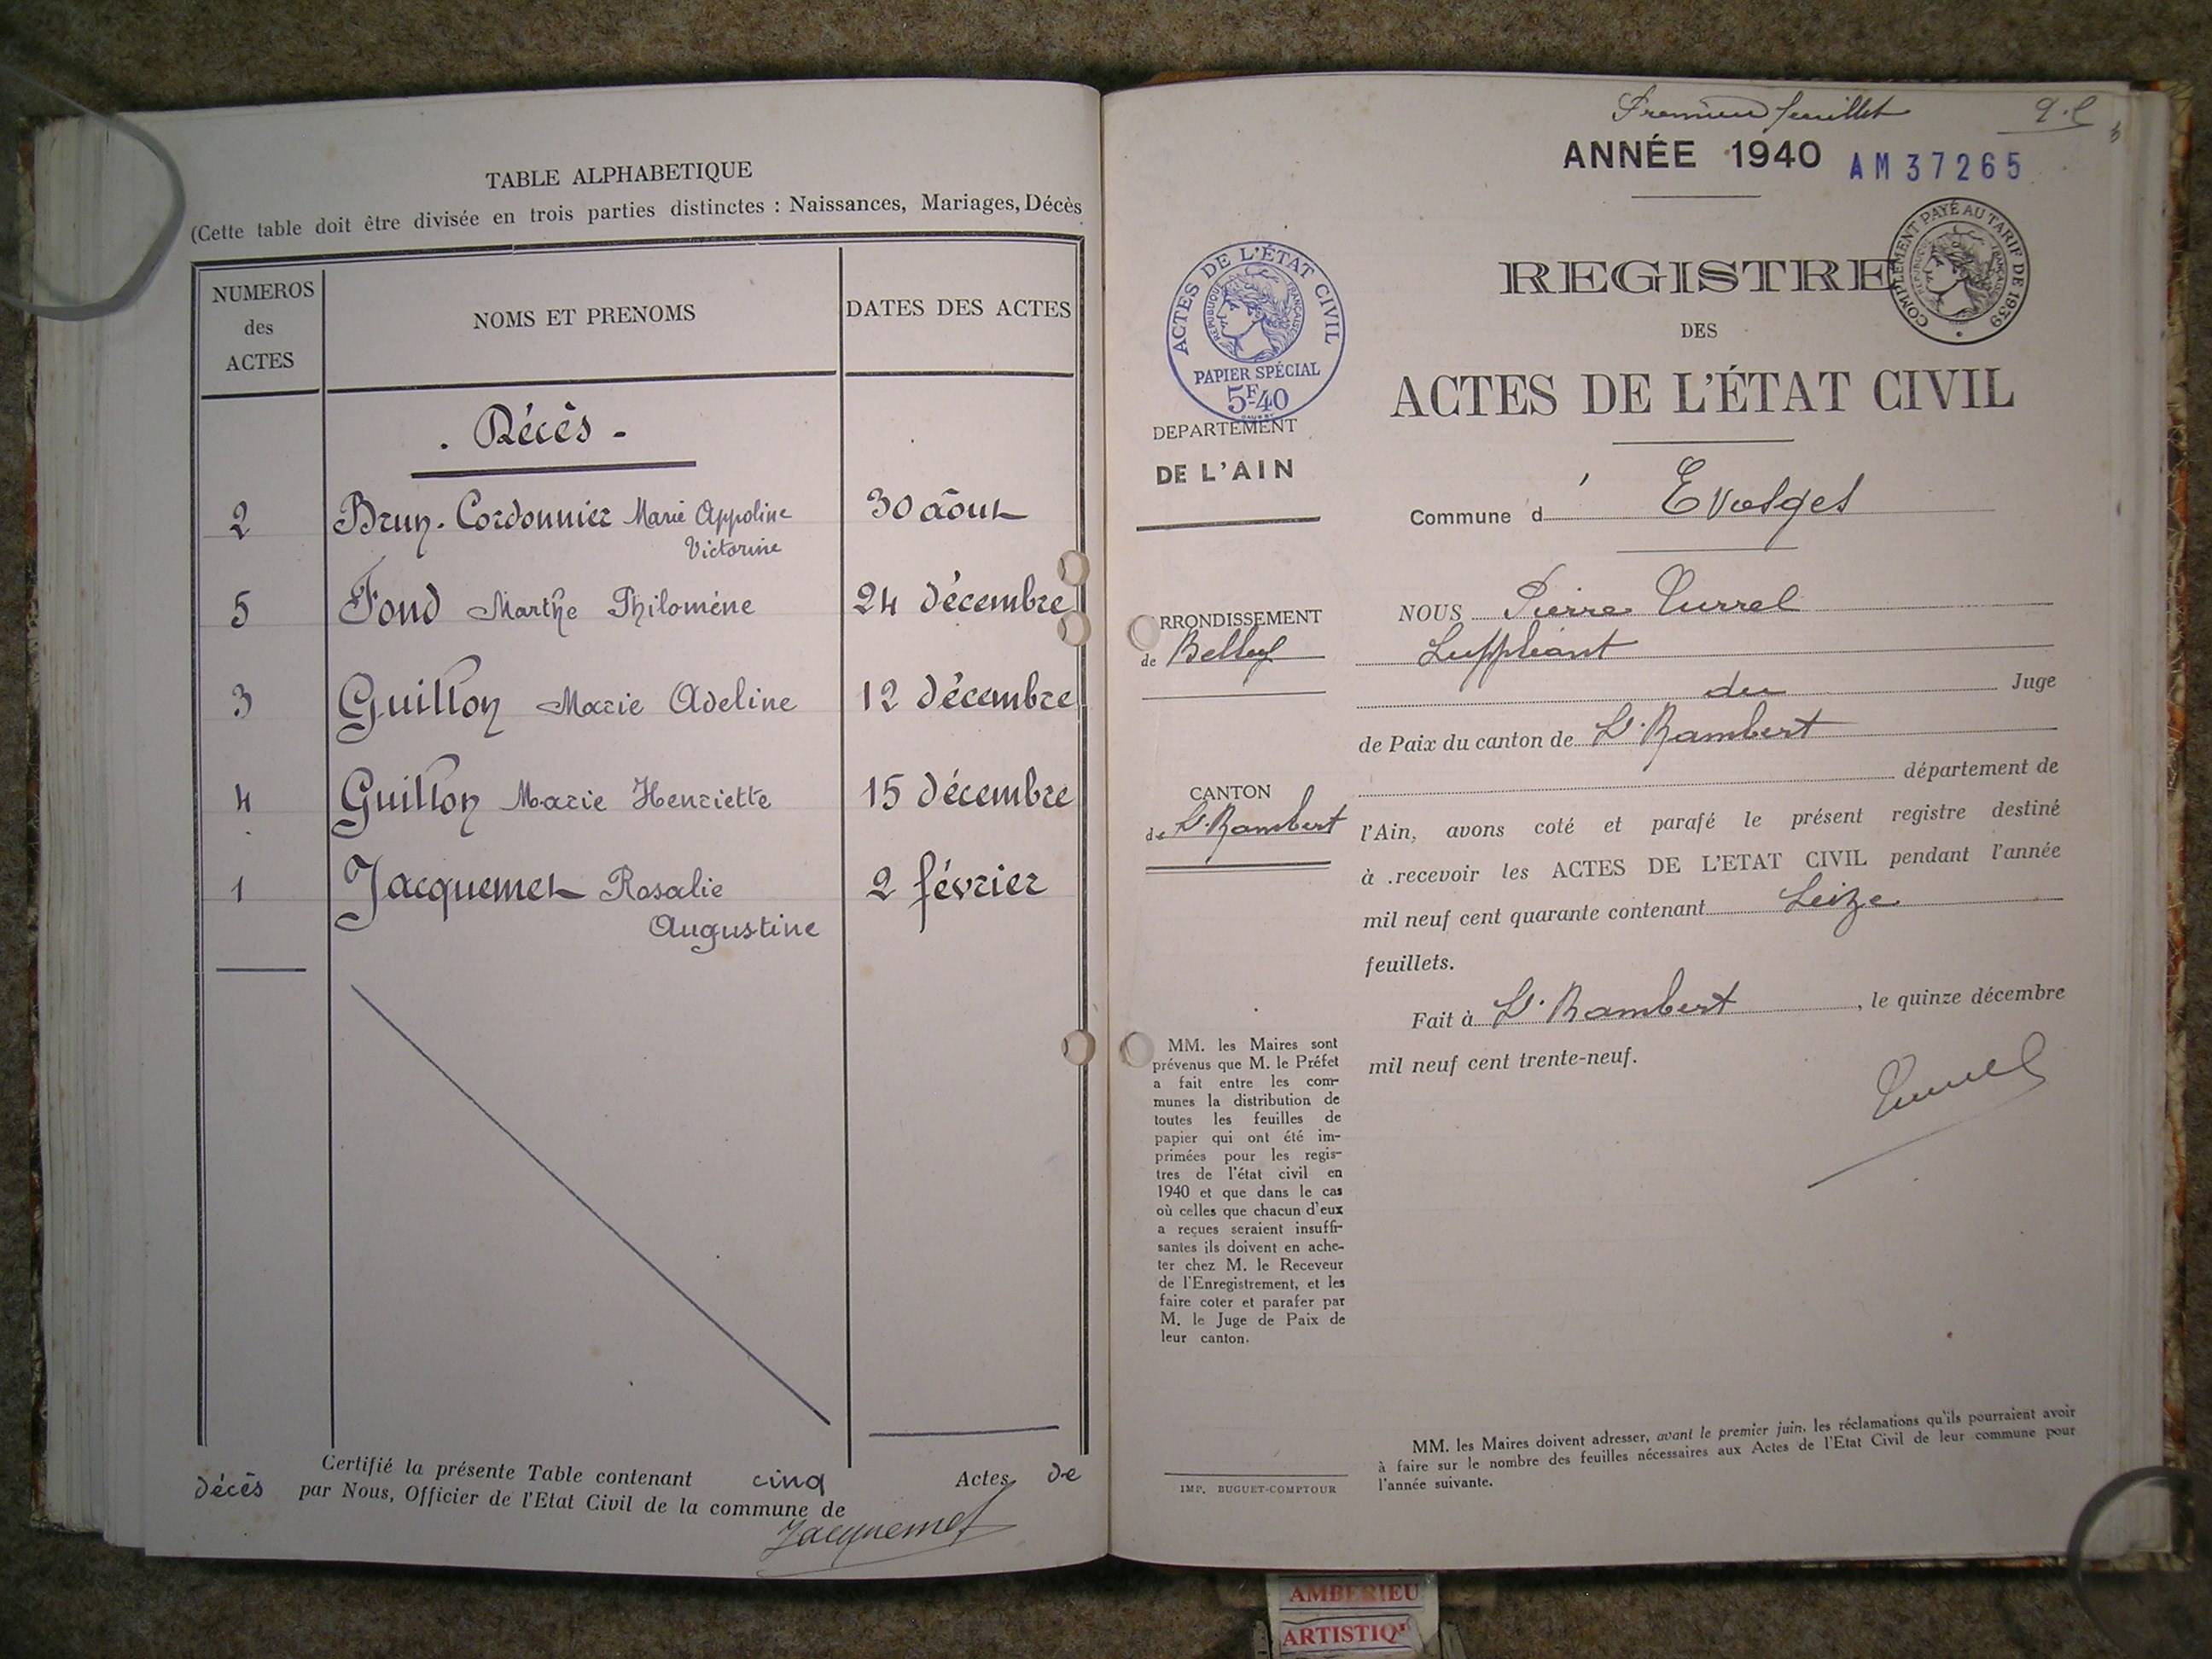 TABLE ALPHABETIQUE
(Cette table doit être divisée en trois parties distinctes : Naissances, Mariages, Décès
NUMEROS
des
ACTES
NOMS ET PRENOMS
DATES DES ACTES
. Décès -
2 Brun-Cordonnier Marie Appoline 30 aôut
Victorine
5 Fond Marthe Philomène 24 décembre
3 Guillon Marie Adeline 12 décembre
4 Guillon Marie Henriette 15 décembre
1 Jacquemet Rosalie 2 février
Augustine
Certifié la présente Table contenant cinq Actes de
décès par Nous, Officier de l'Etat Civil de la commune de
Jacquemet
Premier feuillet
ANNÉE 1940 AM 37265
COMPLÉMENT PAYÉ AU TARIF DE 1939
RÉPUBLIQUE FRANÇAISE
ACTES DE L'ÉTAT CIVIL
RÉPUBLIQUE FRANÇAISE
PAPIER SPÉCIAL
5F-40
REGISTRE
DES
ACTES DE L'ÉTAT CIVIL
DEPARTEMENT
DE L'AIN
Commune d' Evosges
ARRONDISSEMENT
de Belley
CANTON
de St. Rambert
NOUS Pierre Turrel
Suppléant
du Juge
de Paix du canton de St. Rambert
département de
l'Ain, avons coté et parafé le présent registre destiné
à recevoir les ACTES DE L'ETAT CIVIL pendant l'année
mil neuf cent quarante contenant Seize
feuillets.
Fait à St. Rambert, le quinze décembre
mil neuf cent trente-neuf.
Turrel
MM. les Maires sont
prévenus que M. le Préfet
a fait entre les com-
munes la distribution de
toutes les feuilles de
papier qui ont été im-
primées pour les regis-
tres de l'état civil en
1940 et que dans le cas
où celles que chacun d'eux
a reçues seraient insuffi-
santes ils doivent en ache-
ter chez M. le Receveur
de l'Enregistrement, et les
faire coter et parafer par
M. le Juge de Paix de
leur canton.
IMP. BUGUET-COMPTOUR
MM. les Maires doivent adresser, avant le premier juin, les réclamations qu'ils pourraient avoir
à faire sur le nombre des feuilles nécessaires aux Actes de l'Etat Civil de leur commune pour
l'année suivante.
AMBERIEU
ARTISTIQ